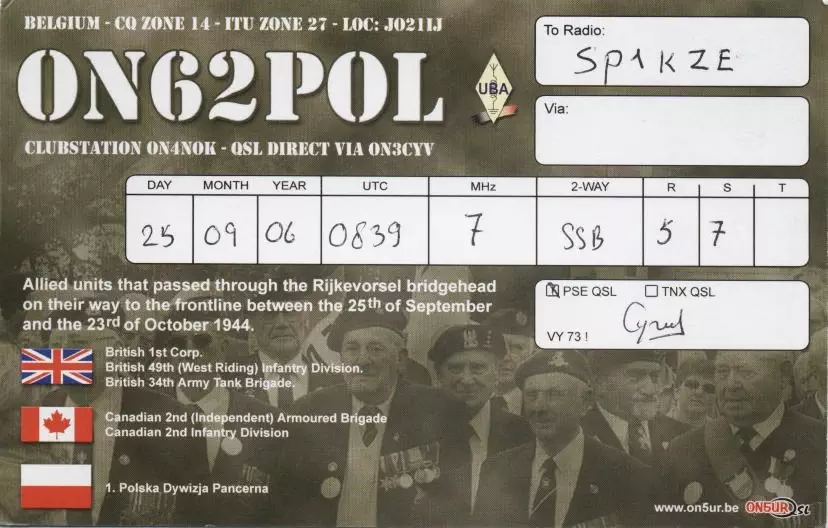 BELGIUM - CQ ZONE 14 - ITU ZONE 27 - LOC: JO21IJ
ON62POL
CLUBSTATION ON4NOK - QSL DIRECT VIA ON3CYV
UBA
To Radio:
SP1KZE
Via:
DAY MONTH YEAR UTC MHz 2-WAY R S T
25 09 06 0839 7 SSB 5 7
Allied units that passed through the Rijkevorsel bridgehead
on their way to the frontline between the 25th of September
and the 23rd of October 1944.
PSE QSL TNX QSL
VY 73 !
British 1st Corp.
British 49th (West Riding) Infantry Division.
British 34th Army Tank Brigade.
Canadian 2nd (Independent) Armoured Brigade
Canadian 2nd Infantry Division
1. Polska Dywizja Pancerna
www.on5ur.be ON5UR QSL